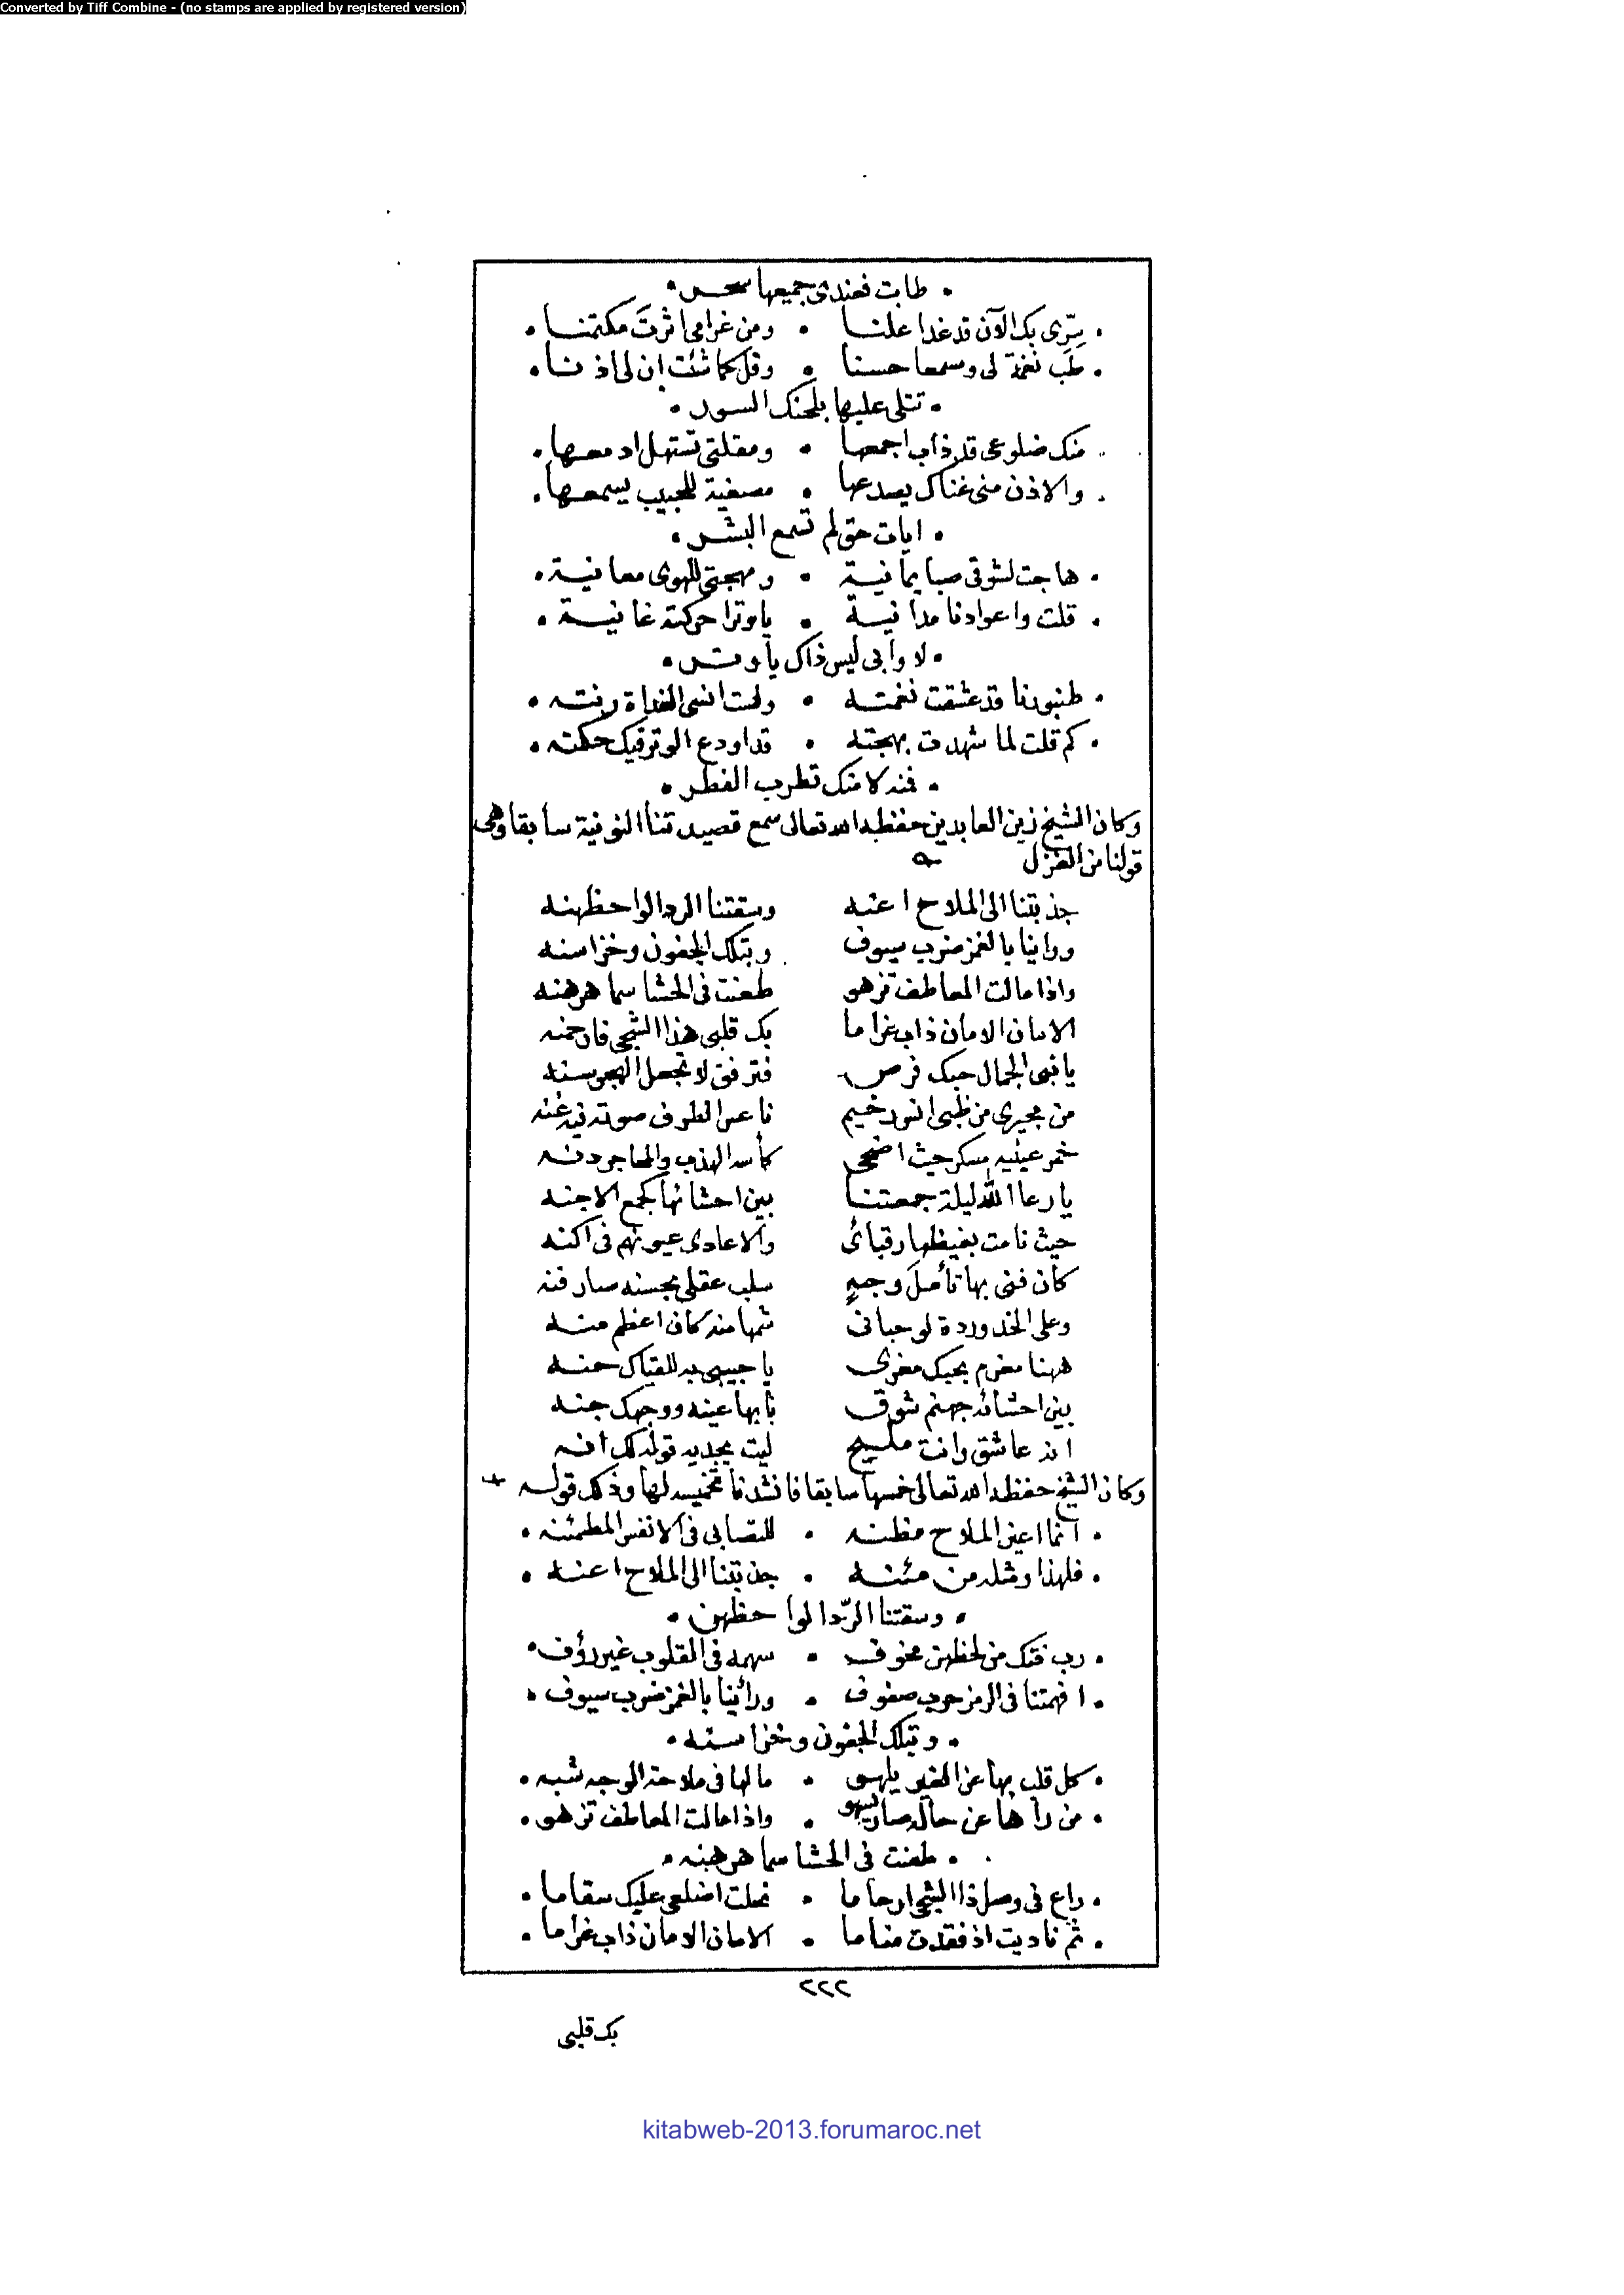 Converted by Tiff Combine - (no stamps are applied by registered version)
• طابت فعندى جميعها سحر •
• سرّى بك الآن قد غدا علنا • ومن غرامى اثرتَ مكتمنا •
• طَب نغمة لى وسمعا حسنا • وقل كما شئت ان لى اذنا •
• تتلى عليها بلحنك السور •
• منك ضلوعى قد ذاب اجمعها • ومقلتى تستهل ادمعها •
• والاذن منى غناك يصدعها • مصغية للحبيب يسمعها •
• ايات حق لم تسمع البشر •
• هاجت لشوقى صبا يمانية • ومهجتى للهوى معانية •
• قلت واعوادنا مدانية • ياوترا حركته غانية •
• لا وابى ليس ذاك ياوتر •
• طنبورنا قد عشقت نغمته • ولست انسى الغداة رنته •
• كم قلت لما شهدت بهجته • قد اودع الوتر فيك حكمته •
• فنه لا منك تطرب الفطر •
وكان الشيخ زين العابدين حفظه الله تعالى سمع قصيدتنا النونية سابقا وهى
قولنا من الغزل
جذبتنا الى الملاح اعنه وسقتنا الردا لواحظهنه
وراينا بالغمز ضرب سيوف وبتلك الجفون وخز اسنه
واذا مالت المعاطف تزهو طعنت فى الحشا سماهرهنه
الامان الامان ذاب غراما بك قلبى هذا الشجى فارحمنه
يا نبى الجمال حبك فرض فترفق لا تجعل الهجر سنه
من مجيرى من ظبى انس رخيم ناعس الطرف صوته فيه غنه
خمر عينيه مسكر حيث اضحى كأسه الهدب والمحاجر دنه
يا رعا الله ليلة جمعتنا بين احشائها كجمع الاجنه
حيث نامت بغيظها رقبائى والاعادى عيونهم فى اكنه
كان فنى بها تأمل وجهٍ سلب عقلى بحسنه صار فنه
وعلى الخد وردة لو حبانى شمها منه كان اعظم منه
ههنا مغرم بحبك مغرى يا حبيبى به للقياك حنه
بين احشائه جهنم شوق يا بها عينه ووجهك جنه
انه عاشق وانت مليح ليت يجديه قوله لك انه
وكان الشيخ حفظه الله تعالى خمسها سابقا فانشدنا تخميسه لها وذلك قوله
• انما اعين الملاح مظنه • للتصابى فى الانفس المطمئنه •
• فلهذا ومثله من مئنه • جذبتنا الى الملاح اعنه •
• وسقتنا الرّدا لواحظهن •
• رب فتك من لحظهن مخوف • سهمه فى القلوب غير رؤف •
• افهمتنا فى الرمز حرب صفوف • ورأينا بالغمز ضرب سيوف •
• وبتلك الجفون وخز اسنه •
• كل قلب بها عن الغير يلهو • ما لها فى ملاحة الوجه شبه •
• من رأها عن حاله صار يسهو • واذا مالت المعاطف تزهو •
• طعنت فى الحشا سماهرهنه •
• راع فى وصل ذا الشجى ارحاما • نحلت اضلعى عليك سقاما •
• ثم ناديت اذ فقدت مناما • الامان الامان ذاب غراما •
٢٢٢
بك قلبى
kitabweb-2013.forumaroc.net